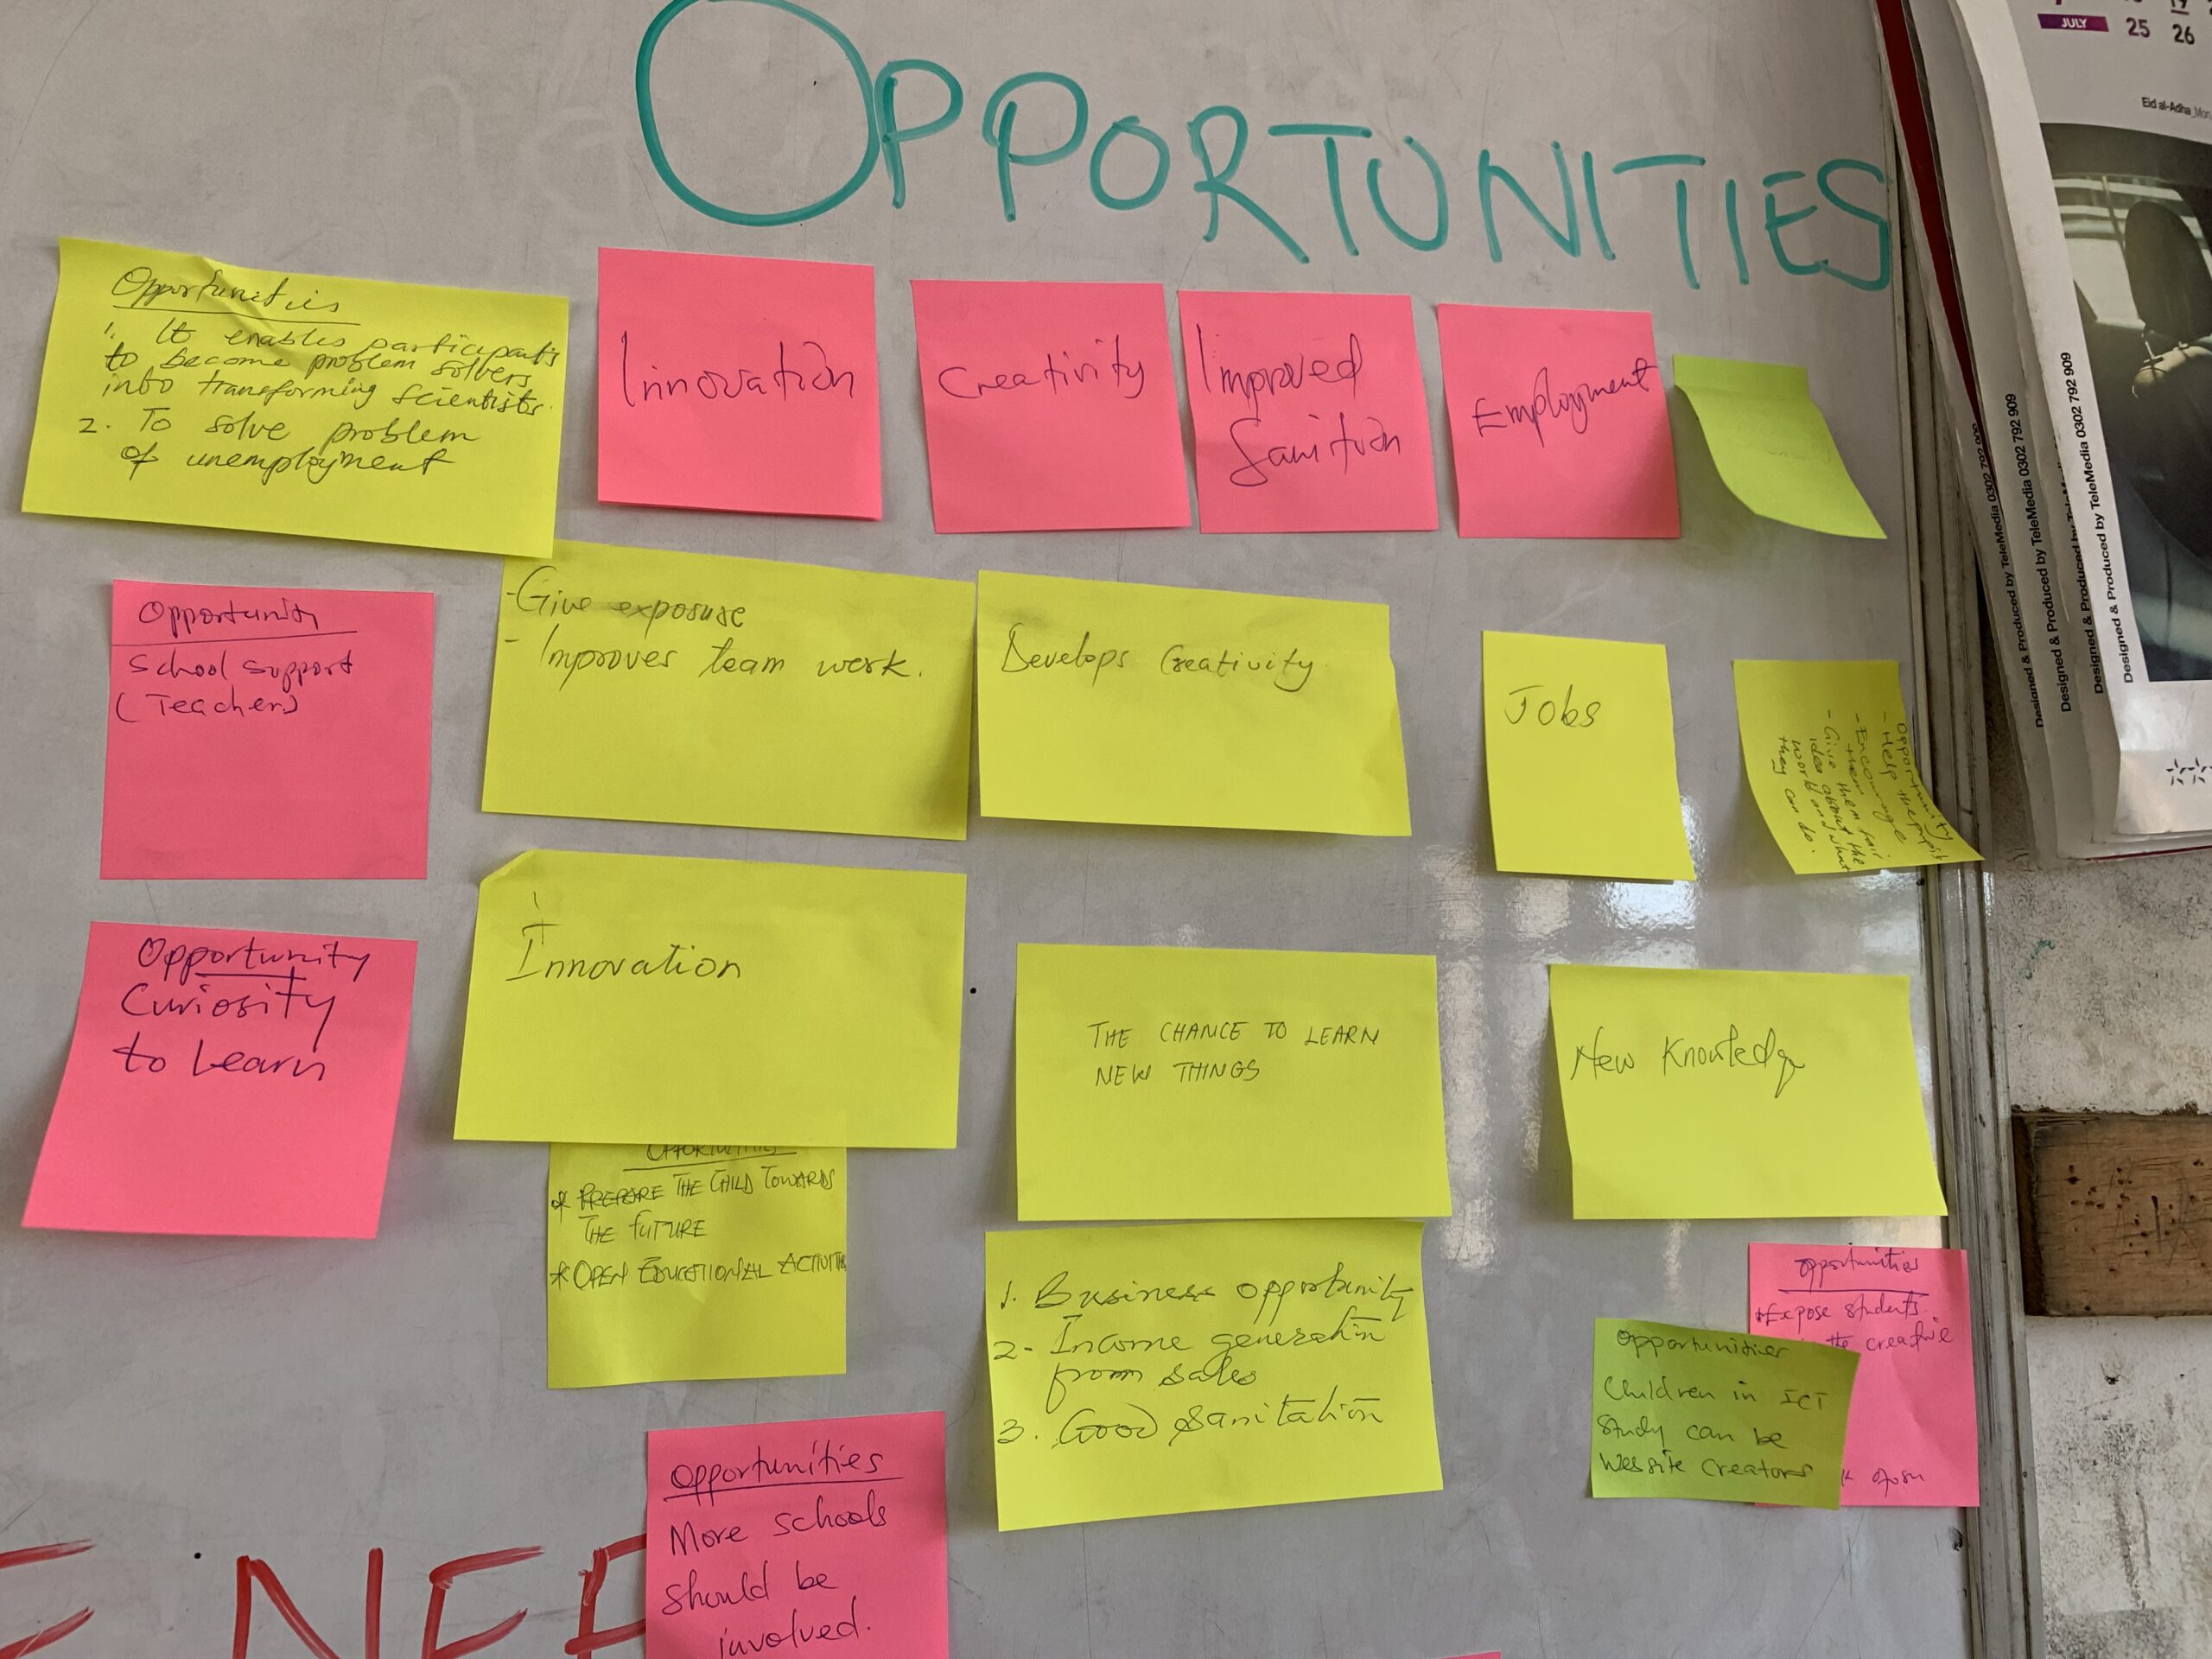 OPPORTUNITIES
Opportunities
1. It enables participants
to become problem solvers
into transforming scientists.
2. To solve problem
of unemployment
Innovation
Creativity
Improved
Sanition
Employment
Opportunity
School support
(Teachers)
-Give exposure
- Improves team work.
Develops Creativity
Jobs
Opportunity
- Help the pupils
- Encourage
them
- Give them fair
idea about the
world and what
they can do.
Opportunity
Curiosity
to Learn
Innovation
THE CHANCE TO LEARN
NEW THINGS
New Knowledge
* PREPARE THE CHILD TOWARDS
THE FUTURE
* OPEN EDUCATIONAL ACTIVITIES
1. Business opportunity
2- Income generation
from sales
3. Good sanitation
opportunities
Expose students
the creative
Opportunities
Children in ICT
Study can be
Website Creators
Opportunities
More schools
should be
involved.
E NEE
JULY
25 26
19
Eid al-Adha Mon
Designed & Produced by TeleMedia 0302 792 909
Designed & Produced by TeleMedia 0302 792 909
Designed & Produced by TeleMedia 0302 792 909
Designed & Produced by TeleMedia 0302 792 909